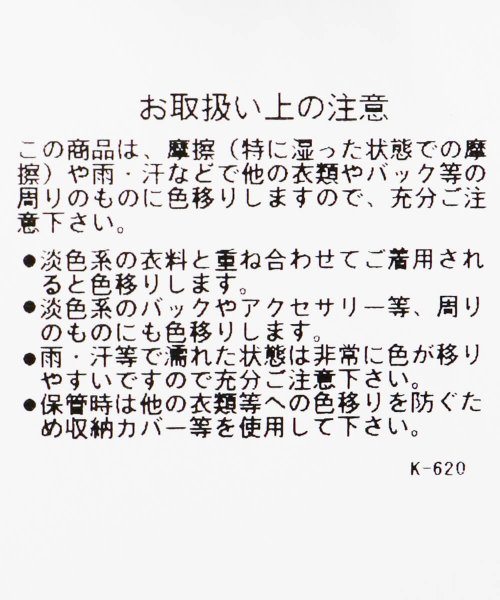 お取扱い上の注意
この商品は、摩擦（特に湿った状態での摩
擦）や雨・汗などで他の衣類やバック等の
周りのものに色移りしますので、充分ご注
意下さい。
●淡色系の衣料と重ね合わせてご着用され
ると色移りします。
●淡色系のバックやアクセサリー等、周り
のものにも色移りします。
●雨・汗等で濡れた状態は非常に色が移り
やすいですので充分ご注意下さい。
●保管時は他の衣類等への色移りを防ぐた
め収納カバー等を使用して下さい。
K-620